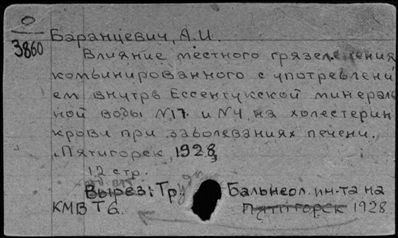 0
3860
Баранцевич, А.И.
Влияние местного грязелечения
комбинированного с употреблени
ем внутрь Ессентукской минераль
ной воды №17 и №4 на холестерин
крови при заболеваниях печени.
Пятигорск, 1928,
12 стр.
Вырез: Тр Бальнеол. ин-та на
КМВ Т 6. Пятигорск 1928